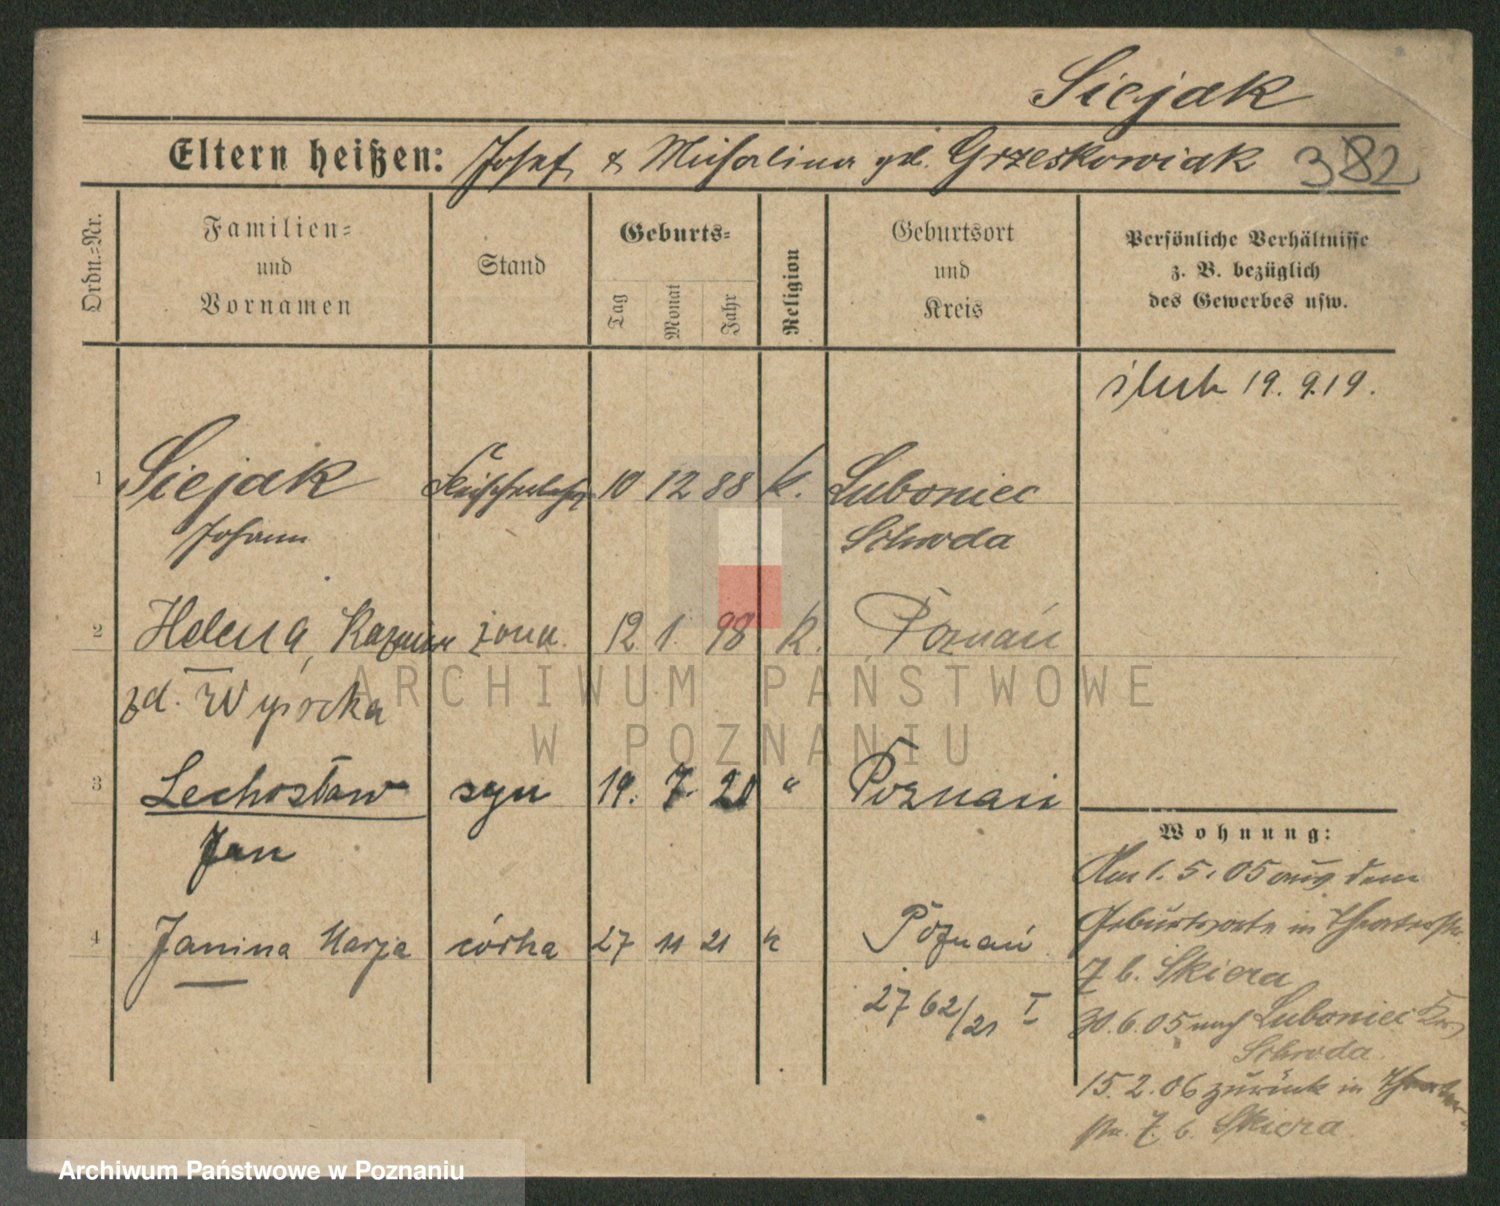 Siejak
Eltern heißen: Josef & Michalina geb. Grzeskowiak 382
Ordn.-Nr.
Familien-
und
Vornamen
Stand
Geburts-
Tag
Monat
Jahr
Religion
Geburtsort
und
Kreis
Persönliche Verhältnisse
z. B. bezüglich
des Gewerbes usw.
ślub 19. 9. 19.
1 Siejak 10 12 88 k. Luboniec
Johann Schroda
2 Helena, żona. 12. 1. 98 k. Poznań
zd. Wysocka
3 Lechosław syn 19. 7. 20 " Poznań
Jan
4 Janina Marja córka 27 11 21 k Poznań
2762/21 I
Wohnung:
Am 1. 5. 05 aus dem
Geburtsorte in Theaterstr.
7 b. Skiera
30. 6. 05 nach Luboniec Krs
Schroda.
15. 2. 06 zurück in Theater-
str. 7. b. Skiera
ARCHIWUM PAŃSTWOWE
W POZNANIU
Archiwum Państwowe w Poznaniu